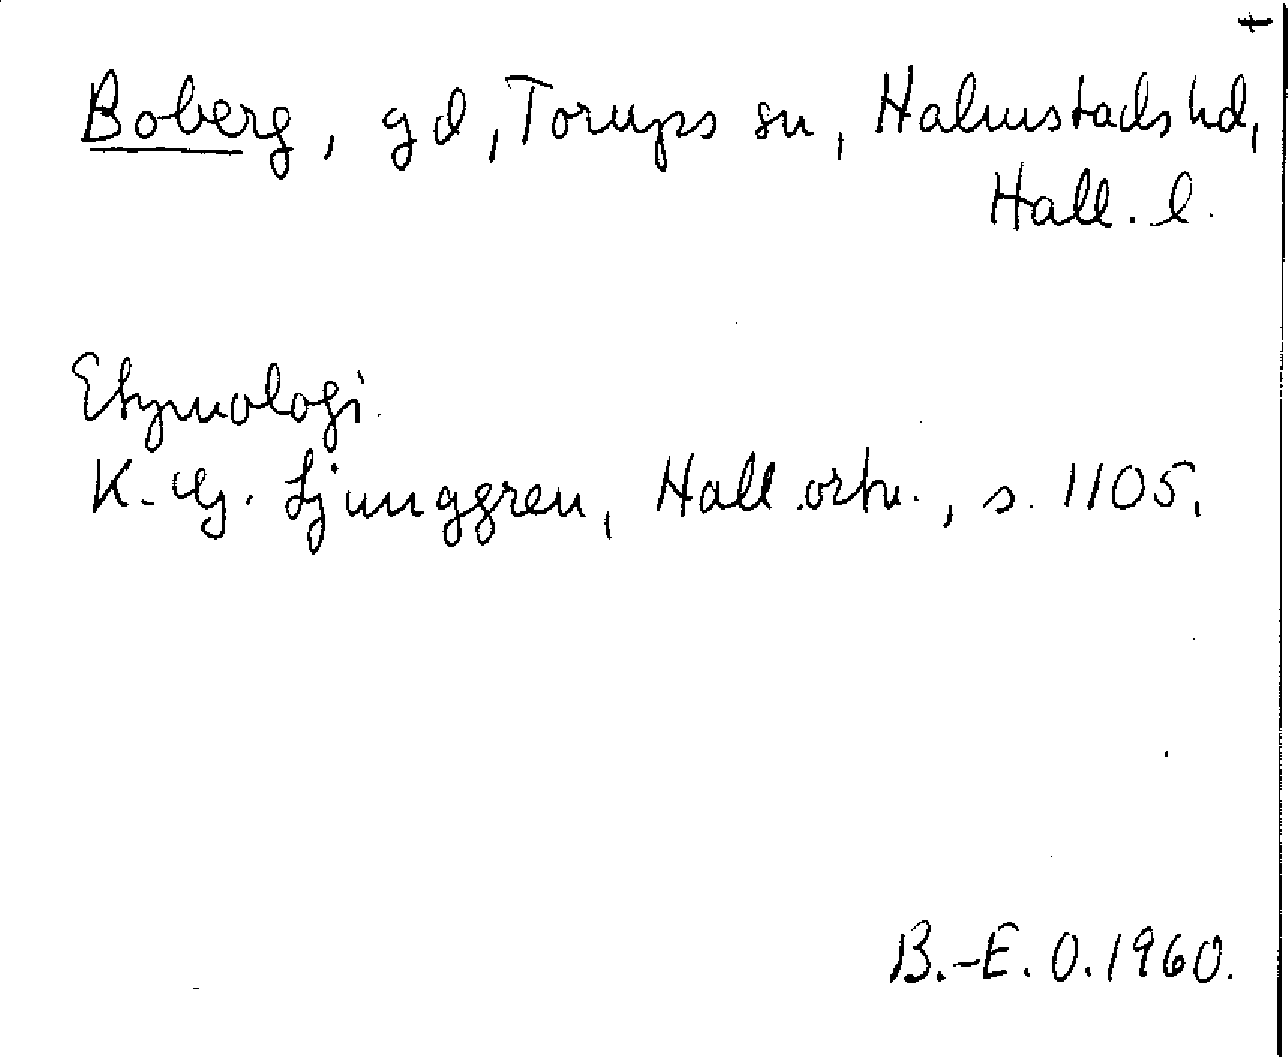 Boberg, gd, Torups sn, Halmstads hd,
Hall. l.
Etymologi.
K.-G. Ljunggren, Hall. ortn., s. 1105.
B.-E. O. 1960.